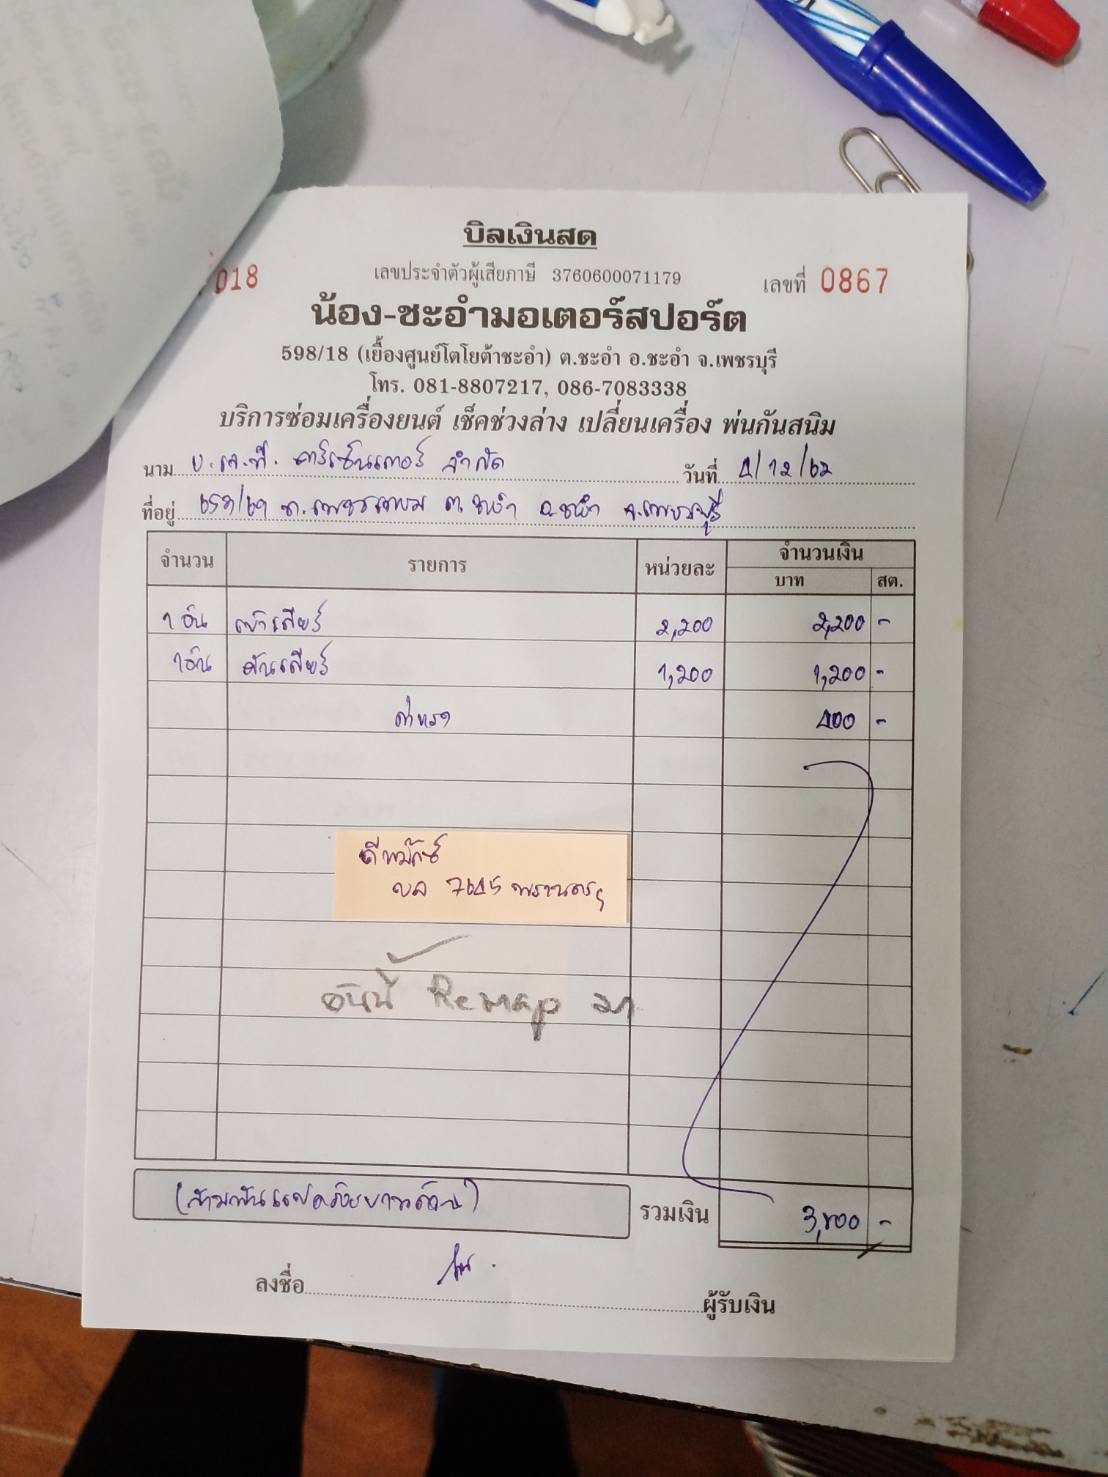 บิลเงินสด
018 เลขประจำตัวผู้เสียภาษี 3760600071179 เลขที่ 0867
น้อง-ชะอำมอเตอร์สปอร์ต
598/18 (เยื้องศูนย์โตโยต้าชะอำ) ต.ชะอำ อ.ชะอำ จ.เพชรบุรี
โทร. 081-8807217, 086-7083338
บริการซ่อมเครื่องยนต์ เช็คช่วงล่าง เปลี่ยนเครื่อง พ่นกันสนิม
นาม บ.เค.ที. คาร์เซ็นเตอร์ จำกัด วันที่ 4/12/62
ที่อยู่ ถ.เพชรเกษม ต.ชะอำ อ.ชะอำ จ.เพชรบุรี
จำนวน รายการ หน่วยละ จำนวนเงิน
บาท สต.
1 อัน เบ้าเกียร์ 2,200 2,200 -
1 อัน คันเกียร์ 1,200 1,200 -
ค่าแรง 400 -
ดีแม๊กซ์
บล 7645
อันนี้ Remap มา
(สามพันแปดร้อยบาทถ้วน) รวมเงิน 3,800 -
ลงชื่อ ผู้รับเงิน